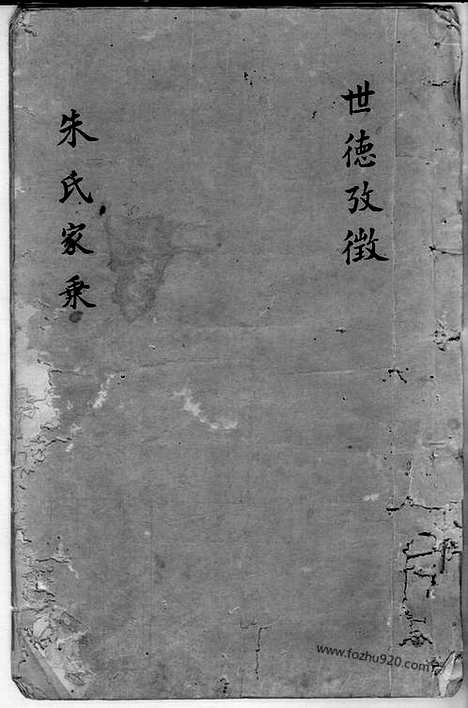 世徳攷徴
朱氏家乗
www.fozhu920.com